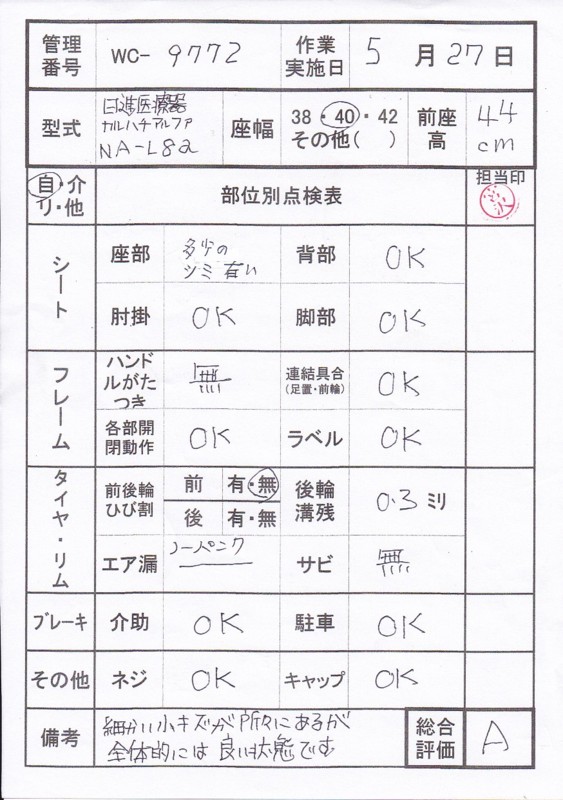 管理番号 WC- 9772 作業実施日 5 月 27 日
型式 日進医療器 カルハチアルファ NA-L8α 座幅 38・40・42 その他( ) 前座高 44 cm
自・介 リ・他 部位別点検表 担当印
シート 座部 多少のシミ有い 背部 OK
肘掛 OK 脚部 OK
フレーム ハンドルがたつき 無 連結具合(足置・前輪) OK
各部開閉動作 OK ラベル OK
タイヤ・リム 前後輪ひび割 前 有・無 後輪溝残 0.3 ミリ
後 有・無
エア漏 ノーパンク サビ 無
ブレーキ 介助 OK 駐車 OK
その他 ネジ OK キャップ OK
備考 細かい小キズが所々にあるが
全体的には良い状態です
総合評価 A